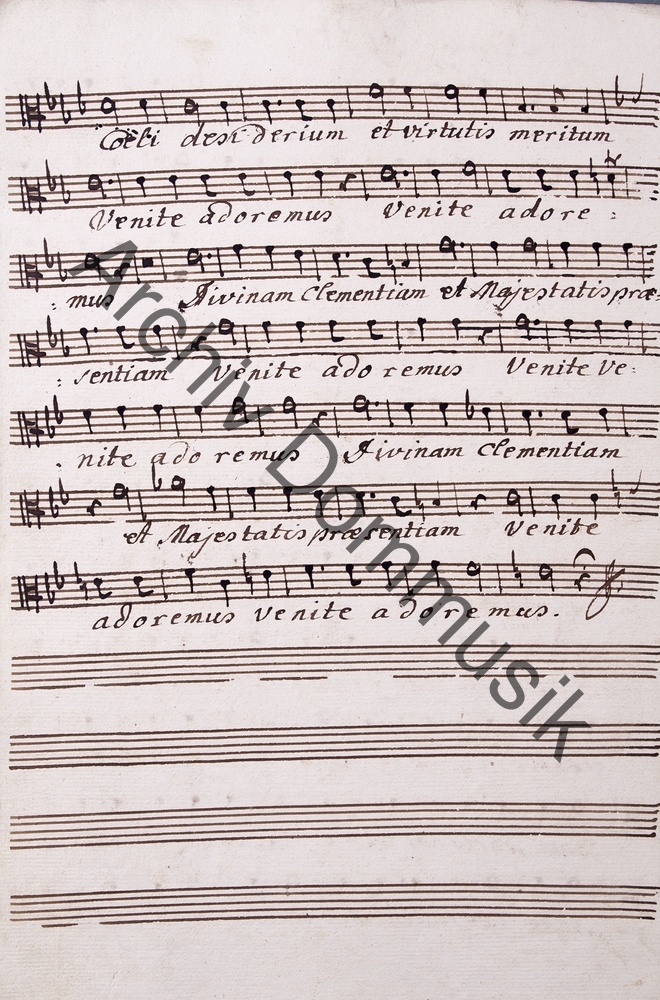 Coeli desiderium et virtutis meritum
Venite adoremus Venite adore :
: mus Divinam Clementiam et Majestatis præ:
: sentiam Venite adoremus Venite Ve:
: nite adoremus Divinam Clementiam
et Majestatis præsentiam Venite
adoremus venite adoremus.
Archiv Dommusik